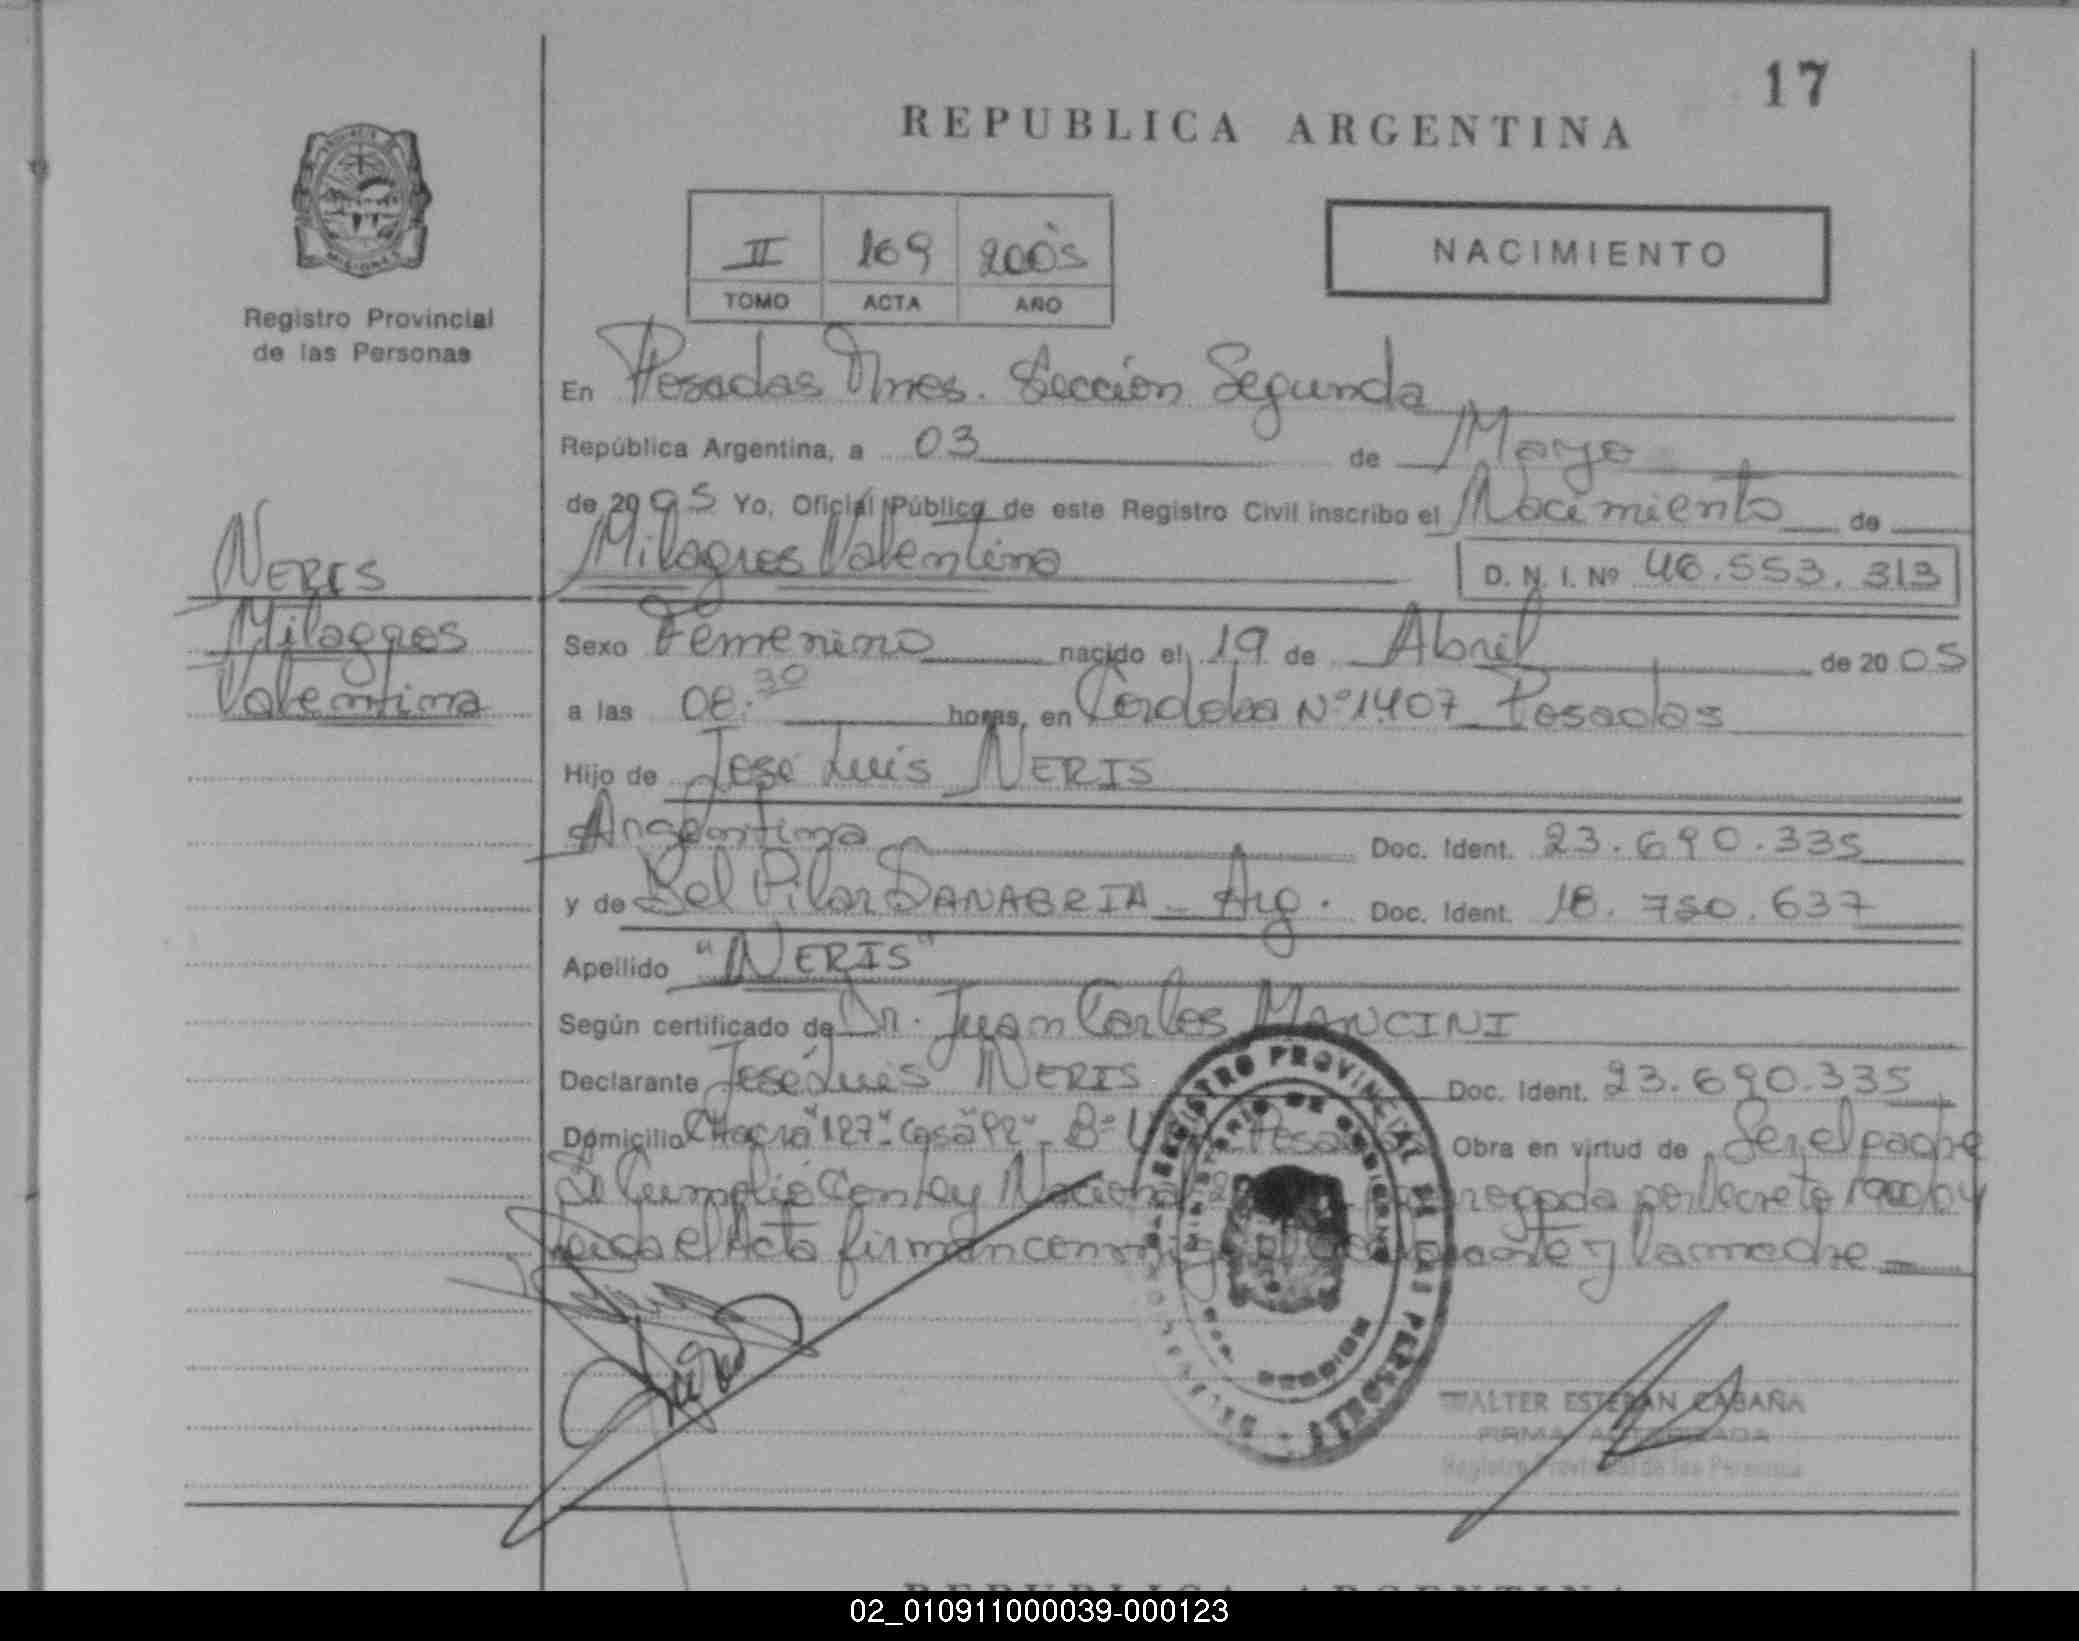 17
REPUBLICA ARGENTINA
II 169 2005
TOMO ACTA AÑO
NACIMIENTO
Registro Provincial
de las Personas
En Posadas Mnes. Sección Segunda
República Argentina, a 03 de Mayo
de 2005 Yo, Oficial Público de este Registro Civil inscribo el Nacimiento de
Milagros Valentina
D. N. I. Nº 46.553.313
NERIS
Milagros
Valentina
Sexo Femenino nacido el 19 de Abril de 2005
a las 08:30 horas, en Córdoba Nº 1407 Posadas
Hijo de José Luis NERIS
Argentina Doc. Ident. 23.690.335
y de Del Pilar SANABRIA - Arg. Doc. Ident. 18.750.637
Apellido "NERIS"
Según certificado de Dr. Juan Carlos MANCINI
Declarante José Luis NERIS Doc. Ident. 23.690.335
Domicilio Chacra "127" Casa "92" Bº Posadas Obra en virtud de Ser el padre
Se Cumplió con Ley Nacional por Decreto
el Acta firman conmigo el y la madre
REGISTRO PROVINCIAL DE LAS PERSONAS
MINISTERIO DE GOBIERNO
MISIONES
WALTER ESTEBAN CABAÑA
FIRMA AUTORIZADA
Registro Provincial de las Personas
REPUBLICA ARGENTINA
02_010911000039-000123